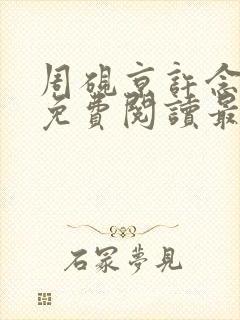 周硯京許念
免費閱讀最
石冢夢見